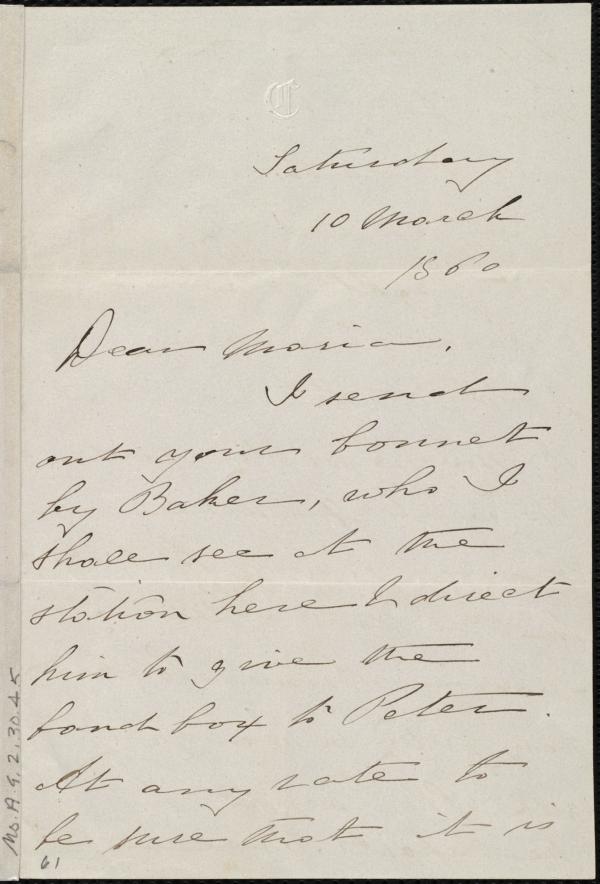 C
Saturday
10 March
1860
Dear Maria,
I send
out your bonnet
by Baker, who I
shall see at the
station here & direct
him to give the
band box to Peter.
At any rate to
be sure that it is
61
Ms. A. 9. 2. 30. 45